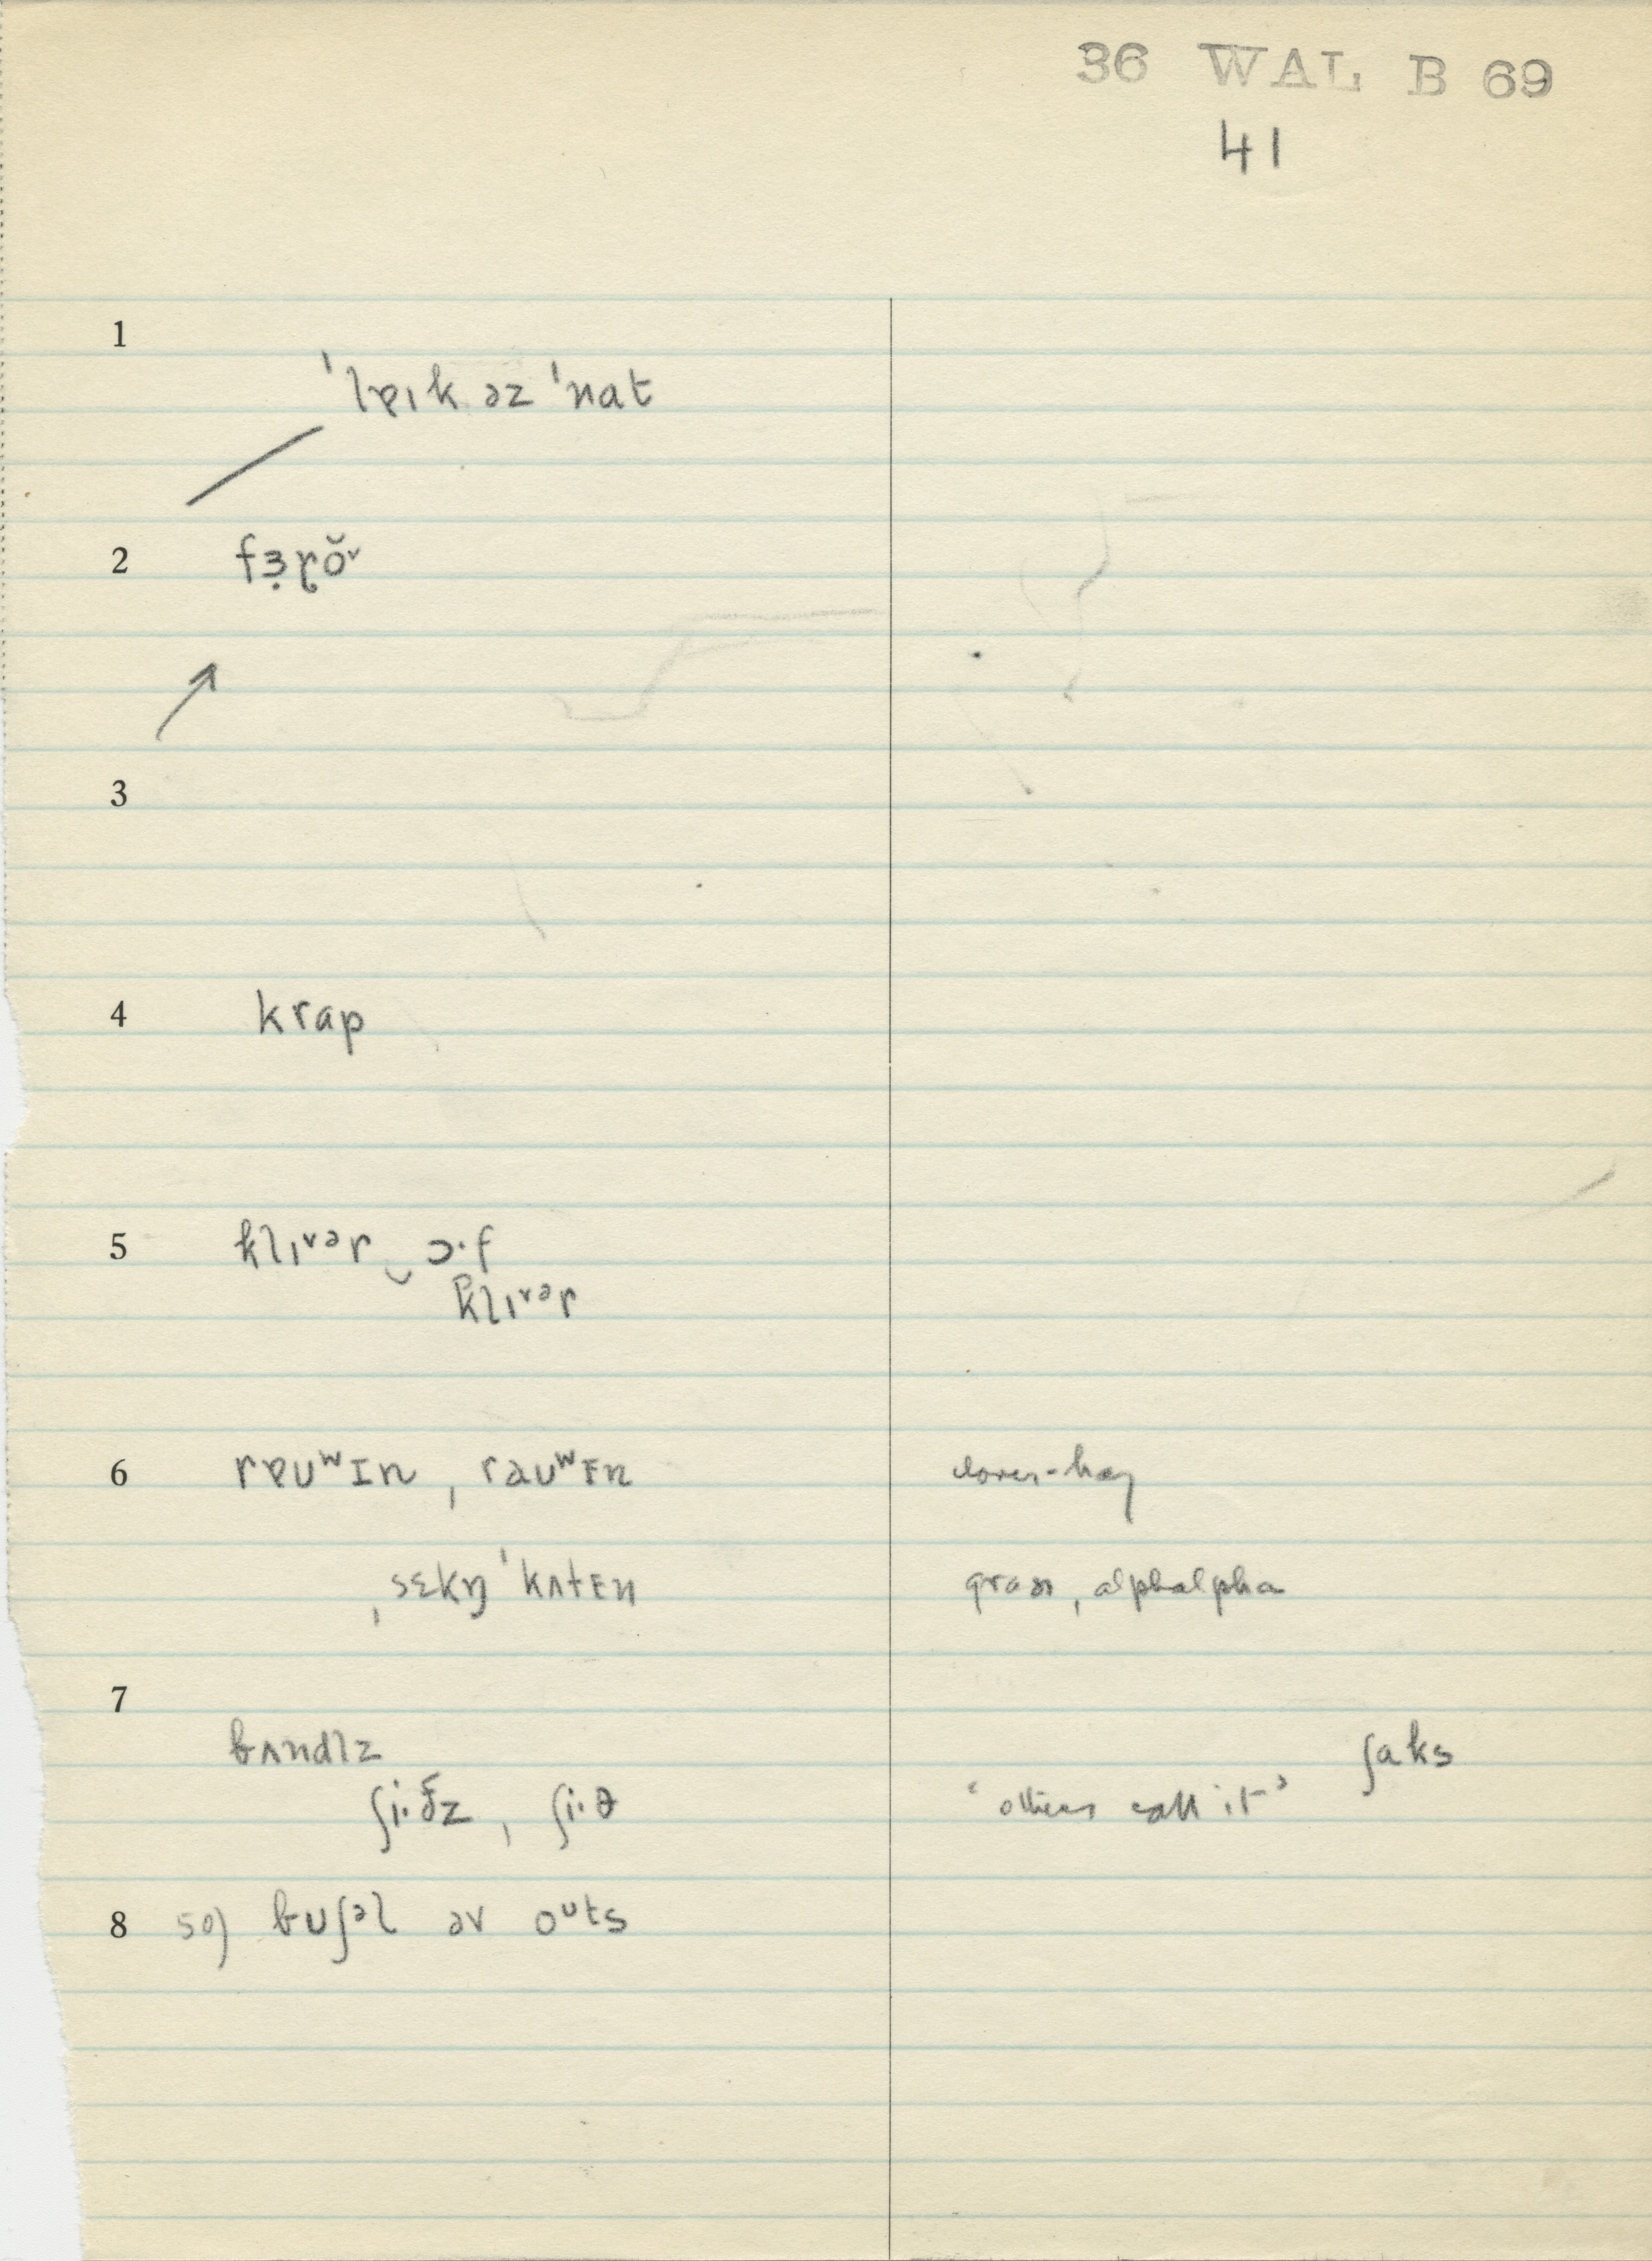 36 WAL B 69
41
1
ˈlɐɪk əz ˈnat
2 fɜ̣ɽŏᵛ
3
4 krap
5 klɪᵛᵊr‿ɔ·f
klɪᵛᵊr
6 rɐuʷɪn, rauʷᴇn clover-hay
, sɛkŋ ˈkʌtᴇn grass, alphalpha
7
bʌndlz ʃaks
ʃi·ðz, ʃi·θ ‘others call it’
8 50) buʃᵊl əv oᵘts